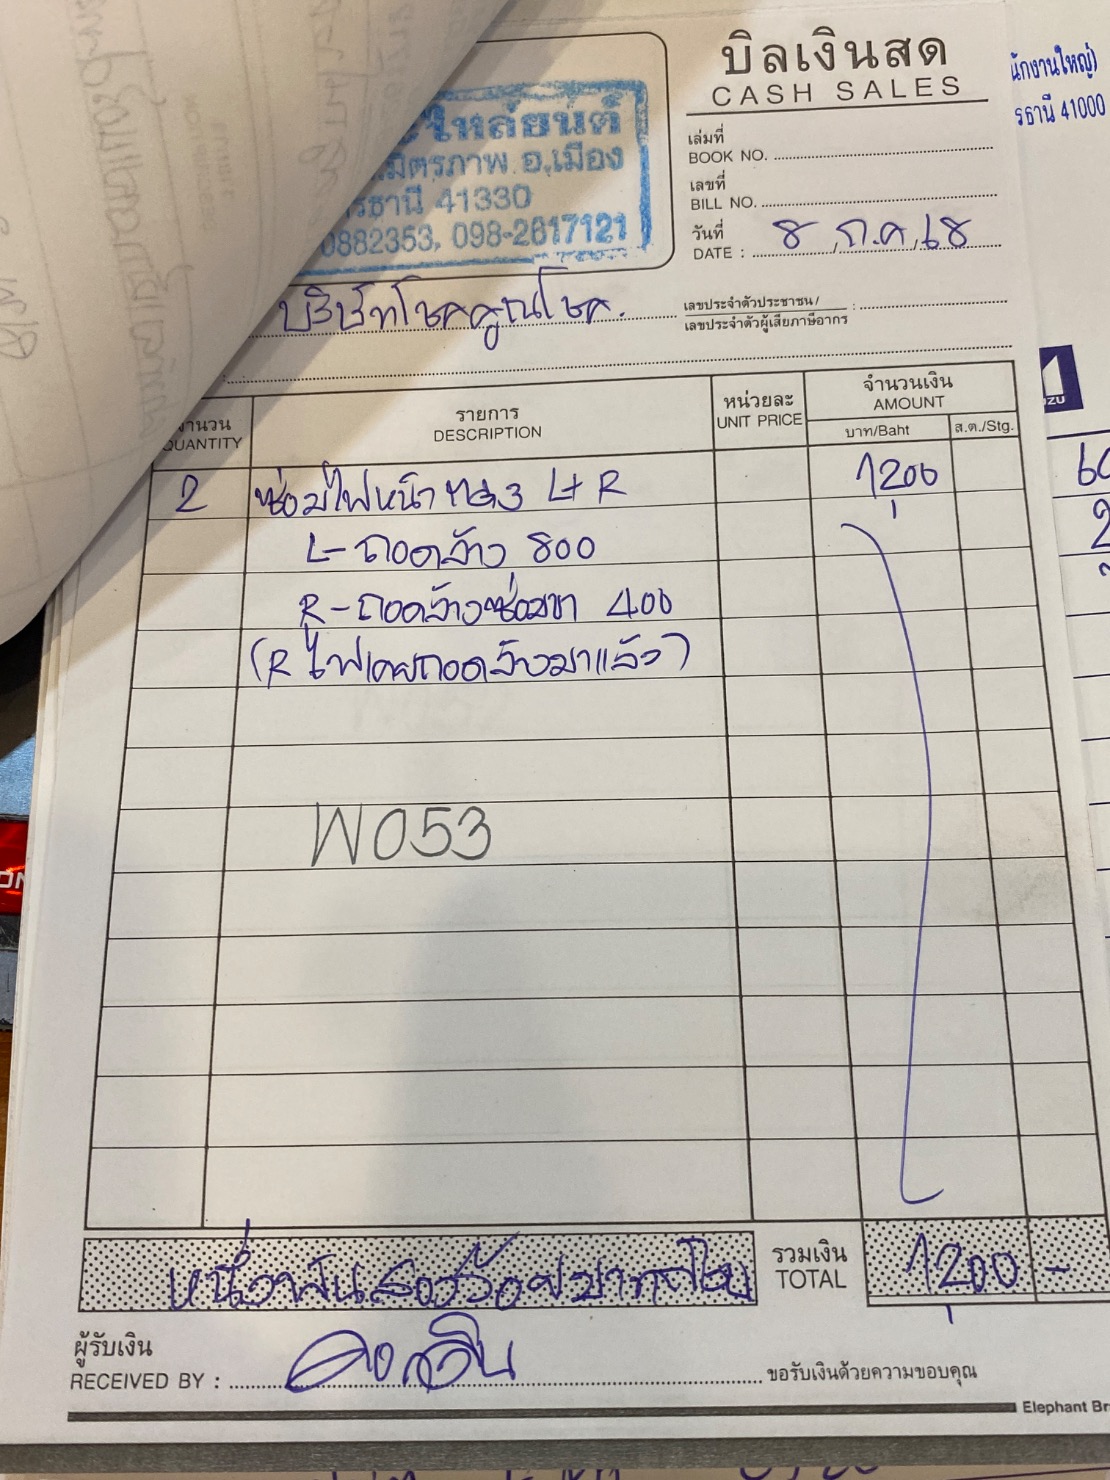 บิลเงินสด
CASH SALES
นักงานใหญ่)
รธานี 41000
ไหล่ยนต์
มิตรภาพ อ.เมือง
รธานี 41330
0882353, 098-2617121
เล่มที่
BOOK NO.
เลขที่
BILL NO.
วันที่
DATE : 8 ก.ค. 68
บริษัทโชคคูณโชค.
เลขประจำตัวประชาชน /
เลขประจำตัวผู้เสียภาษีอากร :
ZU
จำนวน
QUANTITY
รายการ
DESCRIPTION
หน่วยละ
UNIT PRICE
จำนวนเงิน
AMOUNT
บาท/Baht
ส.ต./Stg.
2 ซ่อมไฟหน้า L+R 1200
L-ถอดล้าง 800
R-ถอดล้างซ่อมขา 400
(R ไฟเคยถอดล้างมาแล้ว)
W053
หนึ่งพันสองร้อยบาทถ้วน
รวมเงิน
TOTAL
1200 -
ผู้รับเงิน
RECEIVED BY :
ขอรับเงินด้วยความขอบคุณ
Elephant Br